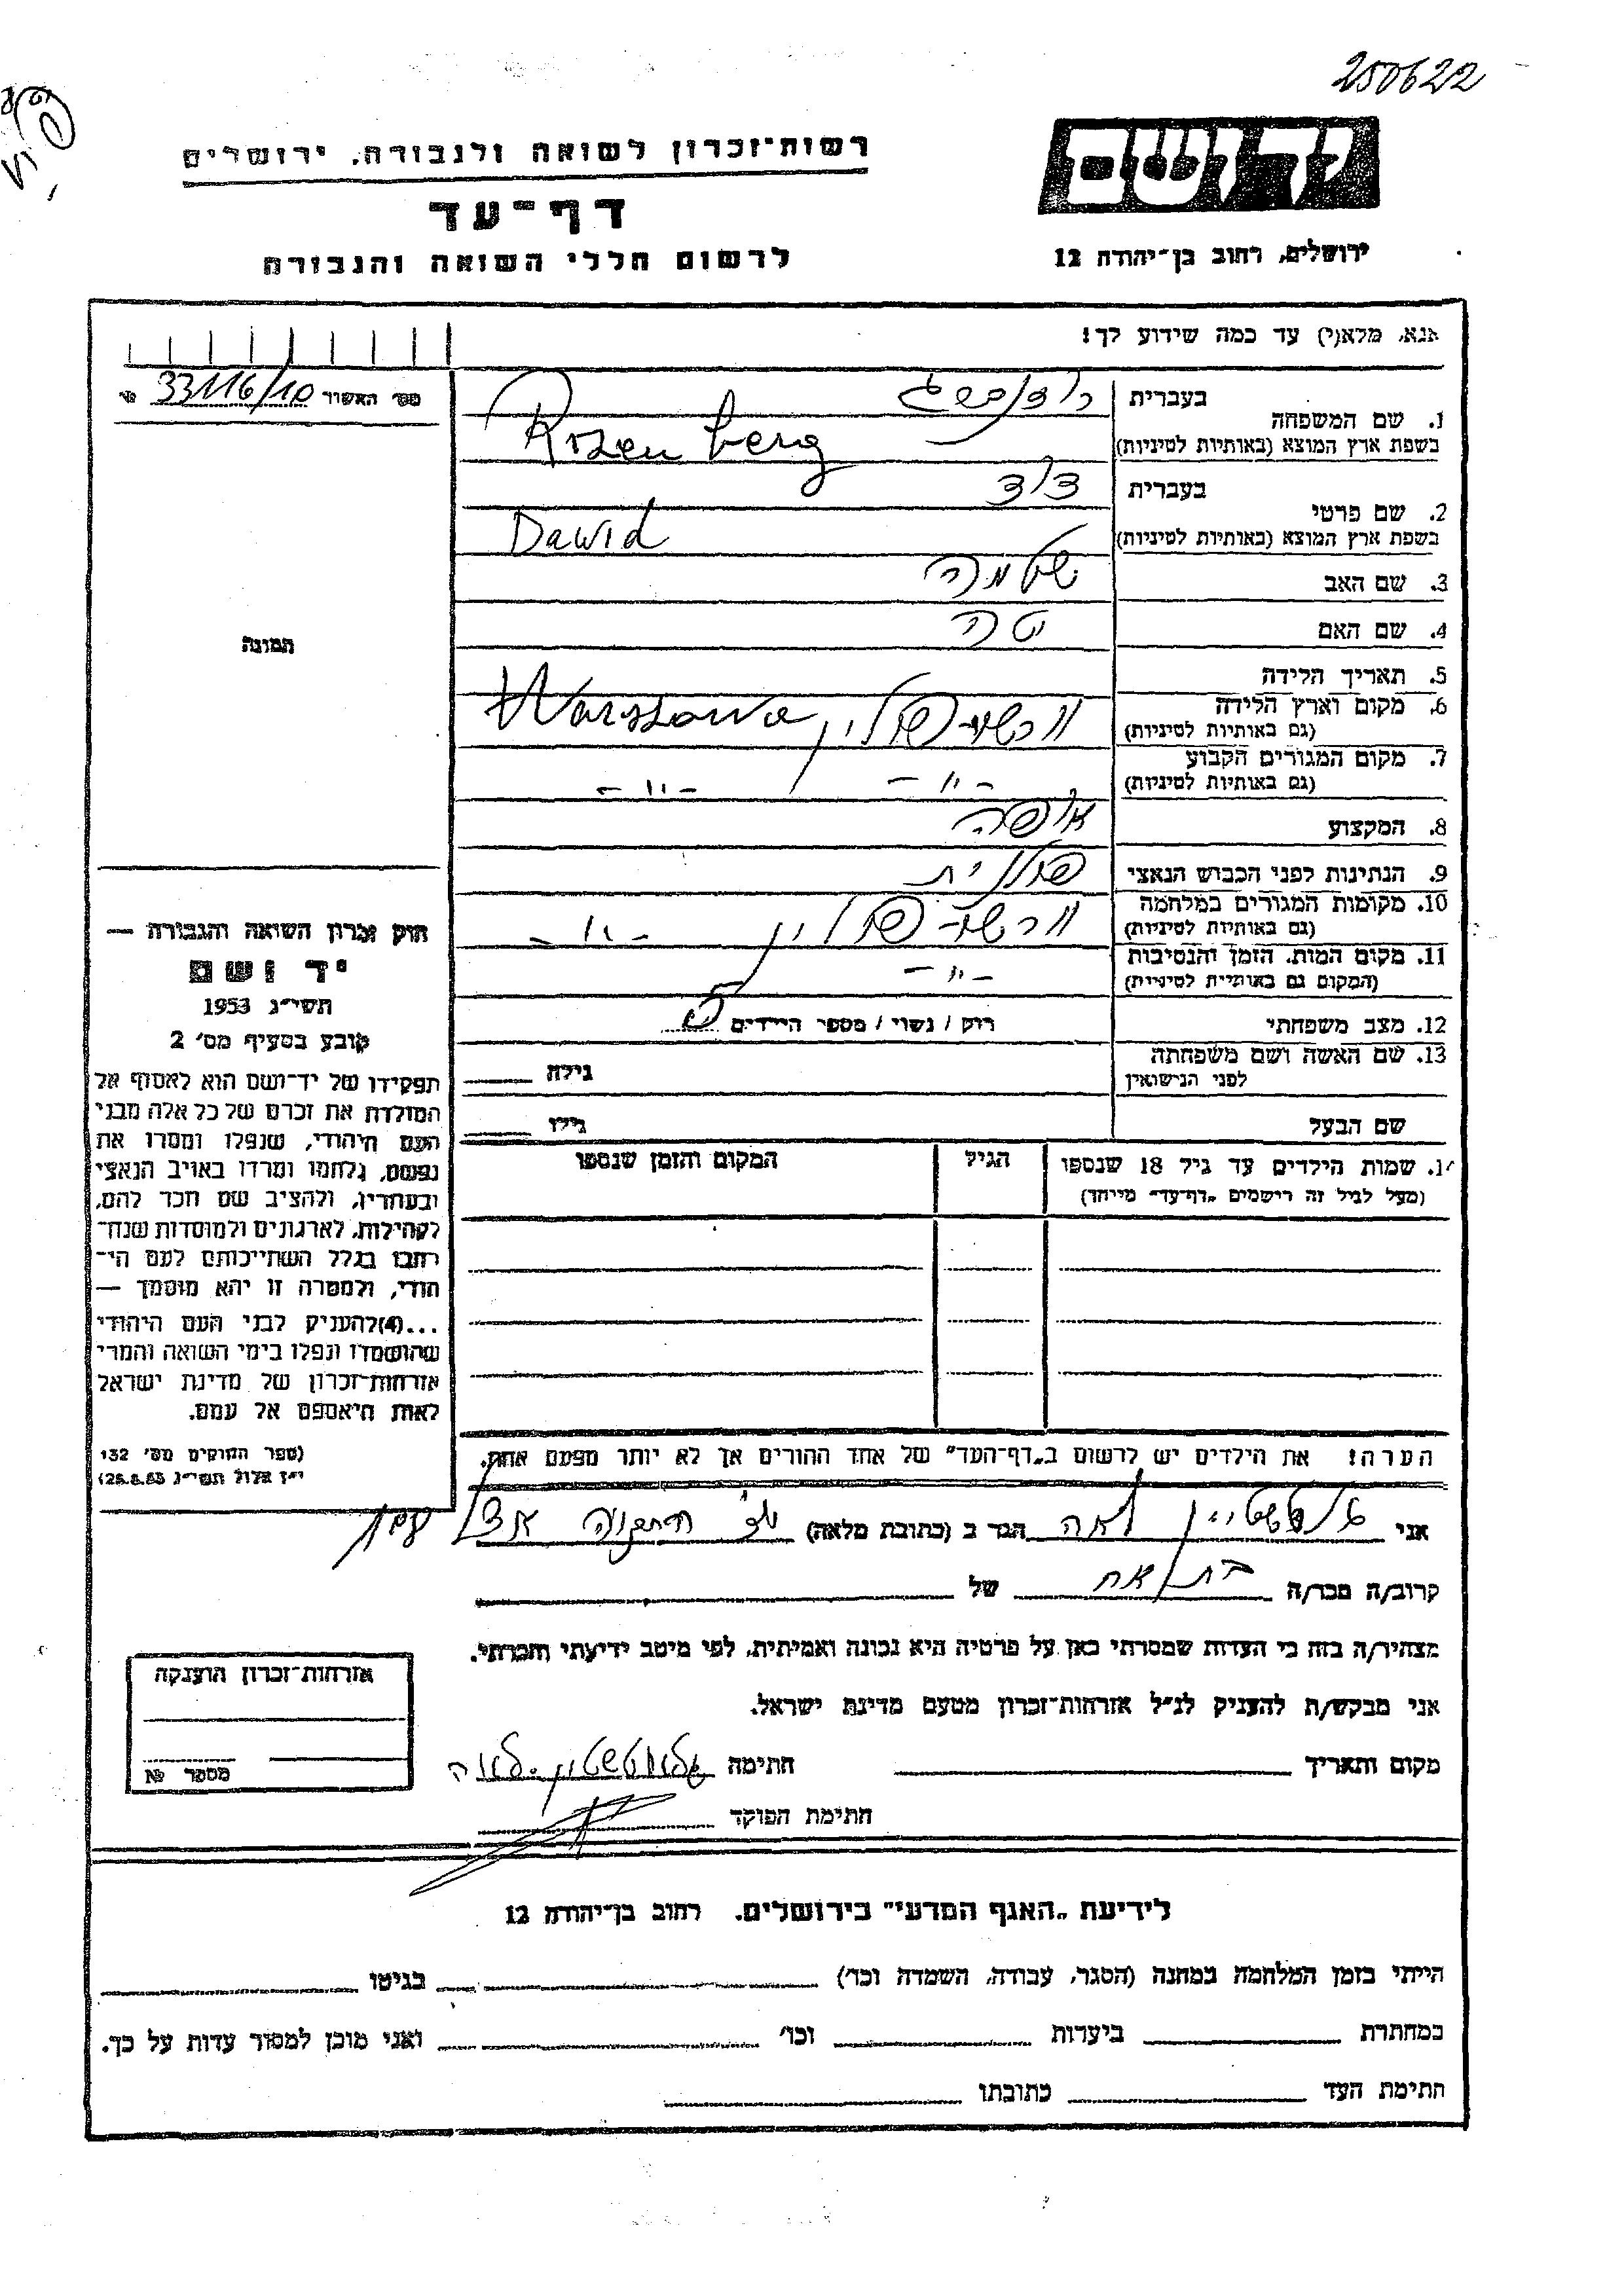 250622
יד ושם
ירושלים, רחוב בן־יהודה 12
רשות־זכרון לשואה ולגבורה, ירושלים
דף־עד
לרשום חללי השואה והגבורה
אנא, מלא(י) עד כמה שידוע לך!
מס׳ האשיר № 33116/10
1. שם המשפחה
בעברית רוזנברג
בשפת ארץ המוצא (באותיות לטיניות) Rozenberg
2. שם פרטי
בעברית דוד
בשפת ארץ המוצא (באותיות לטיניות) Dawid
3. שם האב שלמה
4. שם האם
5. תאריך הלידה
6. מקום וארץ הלידה
(גם באותיות לטיניות) ורשה־פולין Warszawa
7. מקום המגורים הקבוע
(גם באותיות לטיניות) –״– –״–
8. המקצוע אופה
9. הנתינות לפני הכבוש הנאצי פולנית
10. מקומות המגורים במלחמה
(גם באותיות לטיניות) ורשה־פולין –״–
11. מקום המות, הזמן והנסיבות
(המקום גם באותיות לטיניות) –״–
12. מצב משפחתי רוק / נשוי / מספר הילדים
13. שם האשה ושם משפחתה
לפני הנישואין גילה
שם הבעל גילו
התמונה
חוק זכרון השואה והגבורה —
יד ושם
תשי״ג 1953
קובע בסעיף מס׳ 2
תפקידו של יד־ושם הוא לאסוף אל
המולדת את זכרם של כל אלה מבני
העם היהודי, שנפלו ומסרו את
נפשם, נלחמו ומרדו באויב הנאצי
ובעוזריו, ולהציב שם וזכר להם,
לקהילות, לארגונים ולמוסדות שנח־
רבו בגלל השתייכותם לעם הי־
הודי, ולמטרה זו יהא מוסמך —
...(4)להעניק לבני העם היהודי
שהושמדו ונפלו בימי השואה והמרי
אזרחות־זכרון של מדינת ישראל
לאות היאספם אל עמם.
(ספר החוקים מס׳ 132
י״ז אלול תשי״ג 28.8.53)
14. שמות הילדים עד גיל 18 שנספו הגיל המקום והזמן שנספו
(מעל לגיל זה רישמים „דף־עד״ מייחד)
הערה! את הילדים יש לרשום ב„דף־העד״ של אחד ההורים אך לא יותר מפעם אחת.
אני לאה הגר ב (כתובת מלאה)
קרוב/ה מכר/ה בת אח של
מצהיר/ה בזה כי העדות שמסרתי כאן על פרטיה היא נכונה ואמיתית, לפי מיטב ידיעתי והכרתי.
אני מבקש/ת להעניק לנ״ל אזרחות־זכרון מטעם מדינת ישראל.
מקום ותאריך חתימה
חתימת הפוקד
אזרחות־זכרון הוענקה
מספר №
לידיעת „האגף המדעי״ בירושלים, רחוב בן־יהודה 12
הייתי בזמן המלחמה במחנה (הסגר, עבודה, השמדה וכד׳) בגיטו
במחתרת ביערות וכו׳ ואני מוכן למסור עדות על כך.
חתימת העד כתובתו